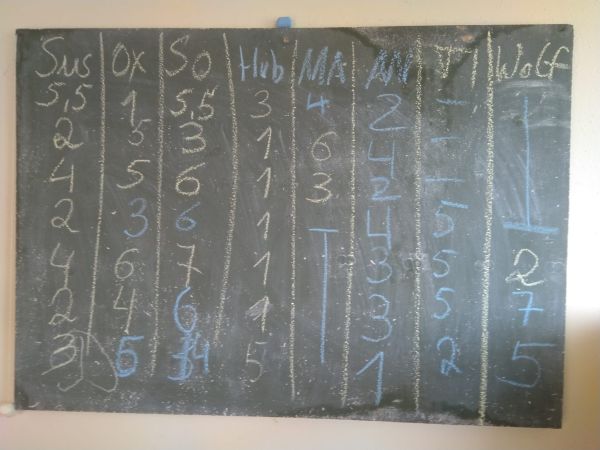 Sus Ox So Hub MA AN VI Wolf
5,5 1 5,5 3 4 2 -
2 5 3 1 6 4 -
4 5 6 1 3 2 -
2 3 6 1 4 5
4 6 7 1 3 5 2
2 4 6 1 3 5 7
3 5 4 5 1 2 5